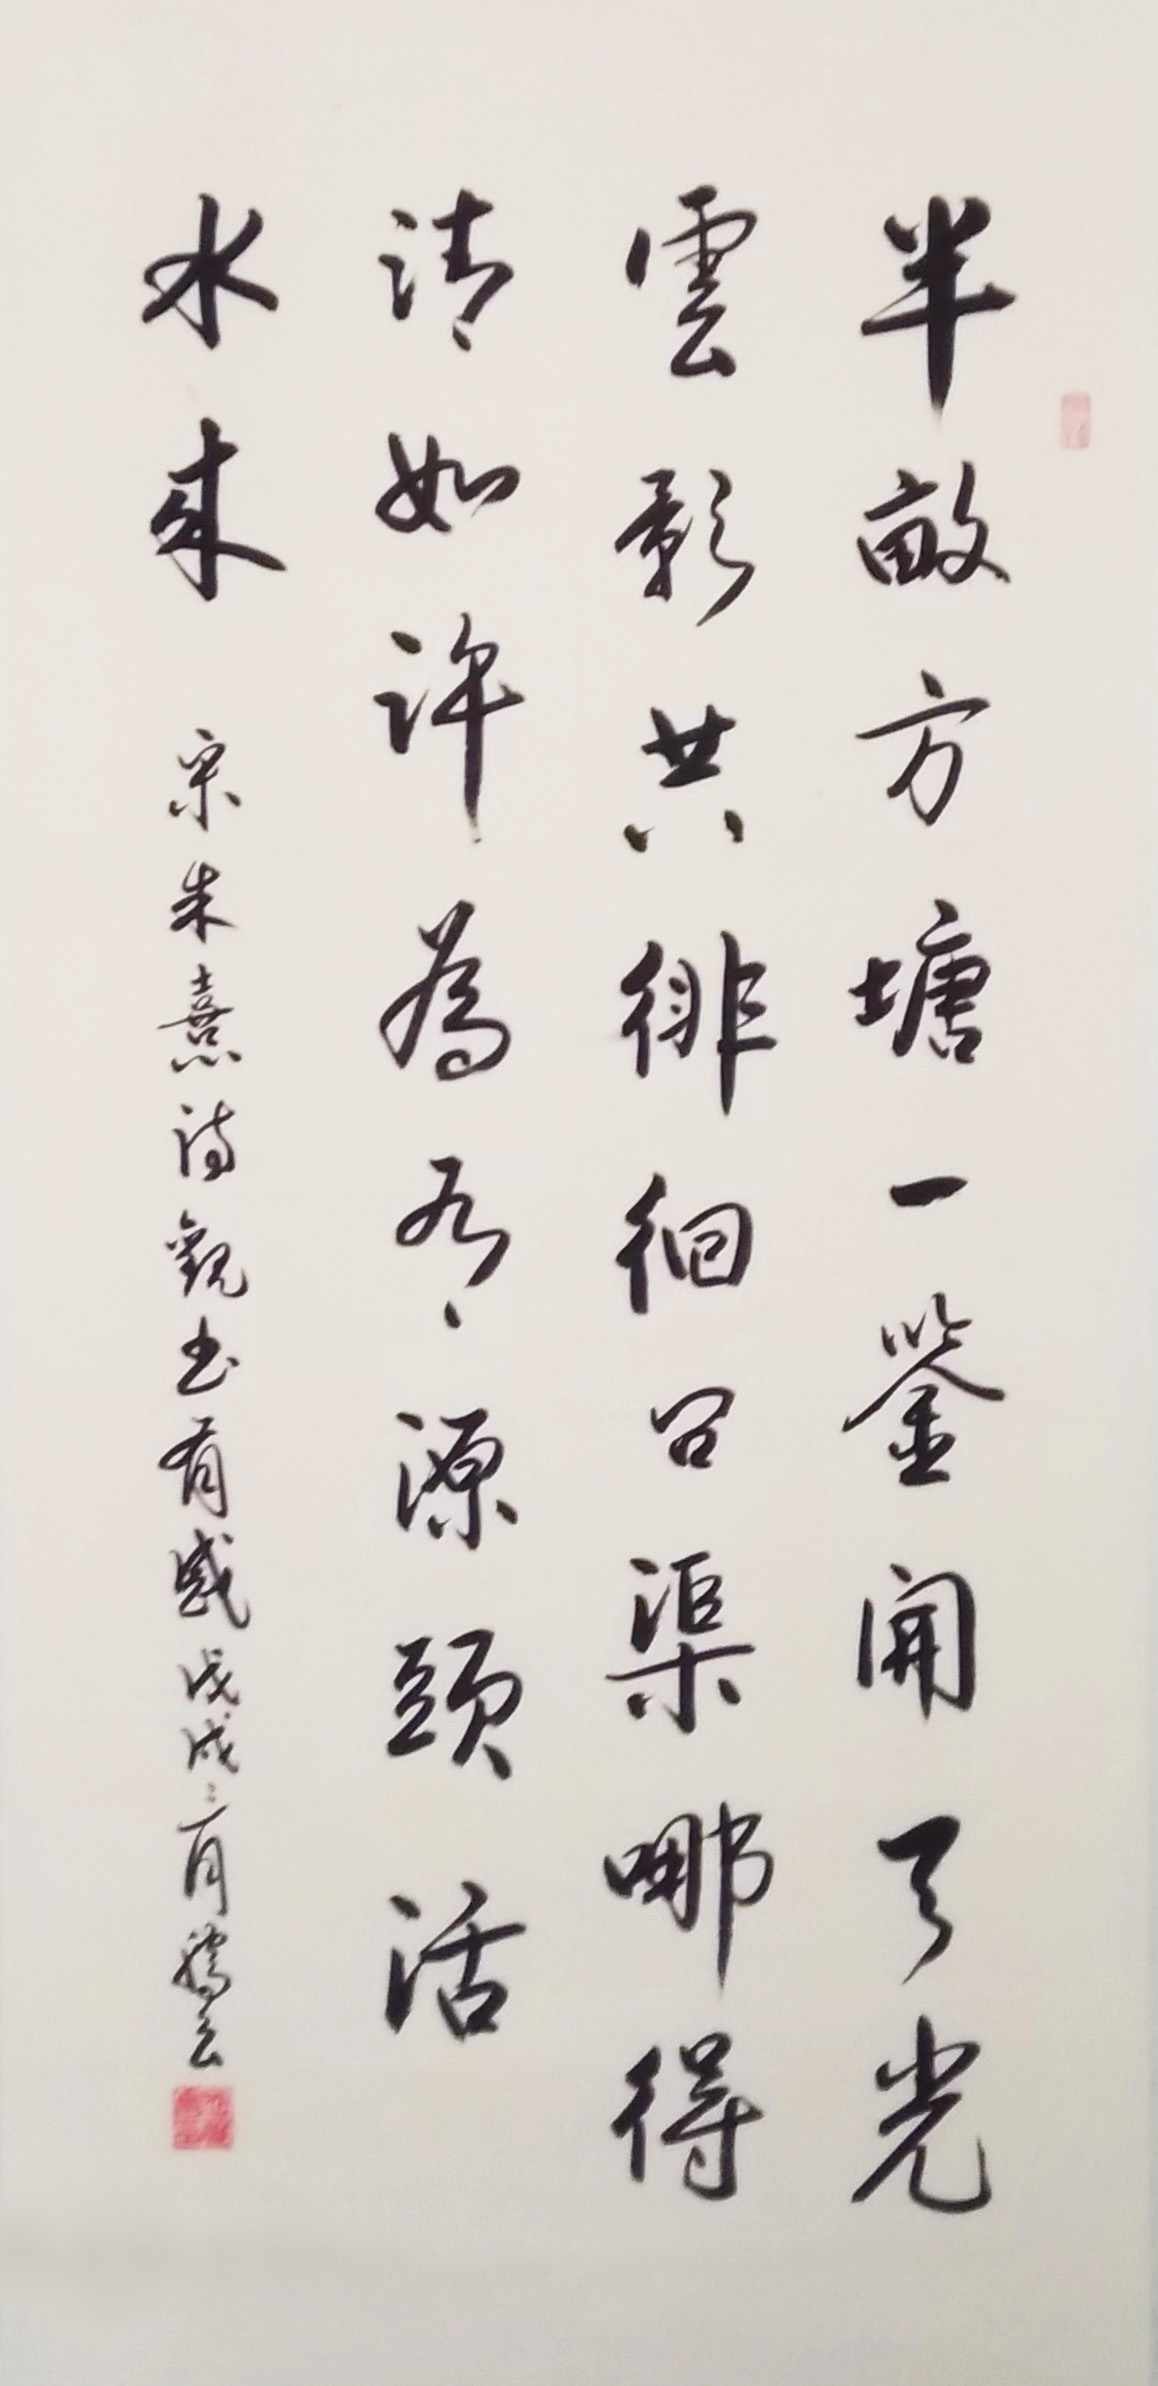 半畝方塘一鉴開天光
雲影共徘徊問渠哪得
清如許為有源頭活
水來
宋朱熹詩觀书有感戊戌二月騰云